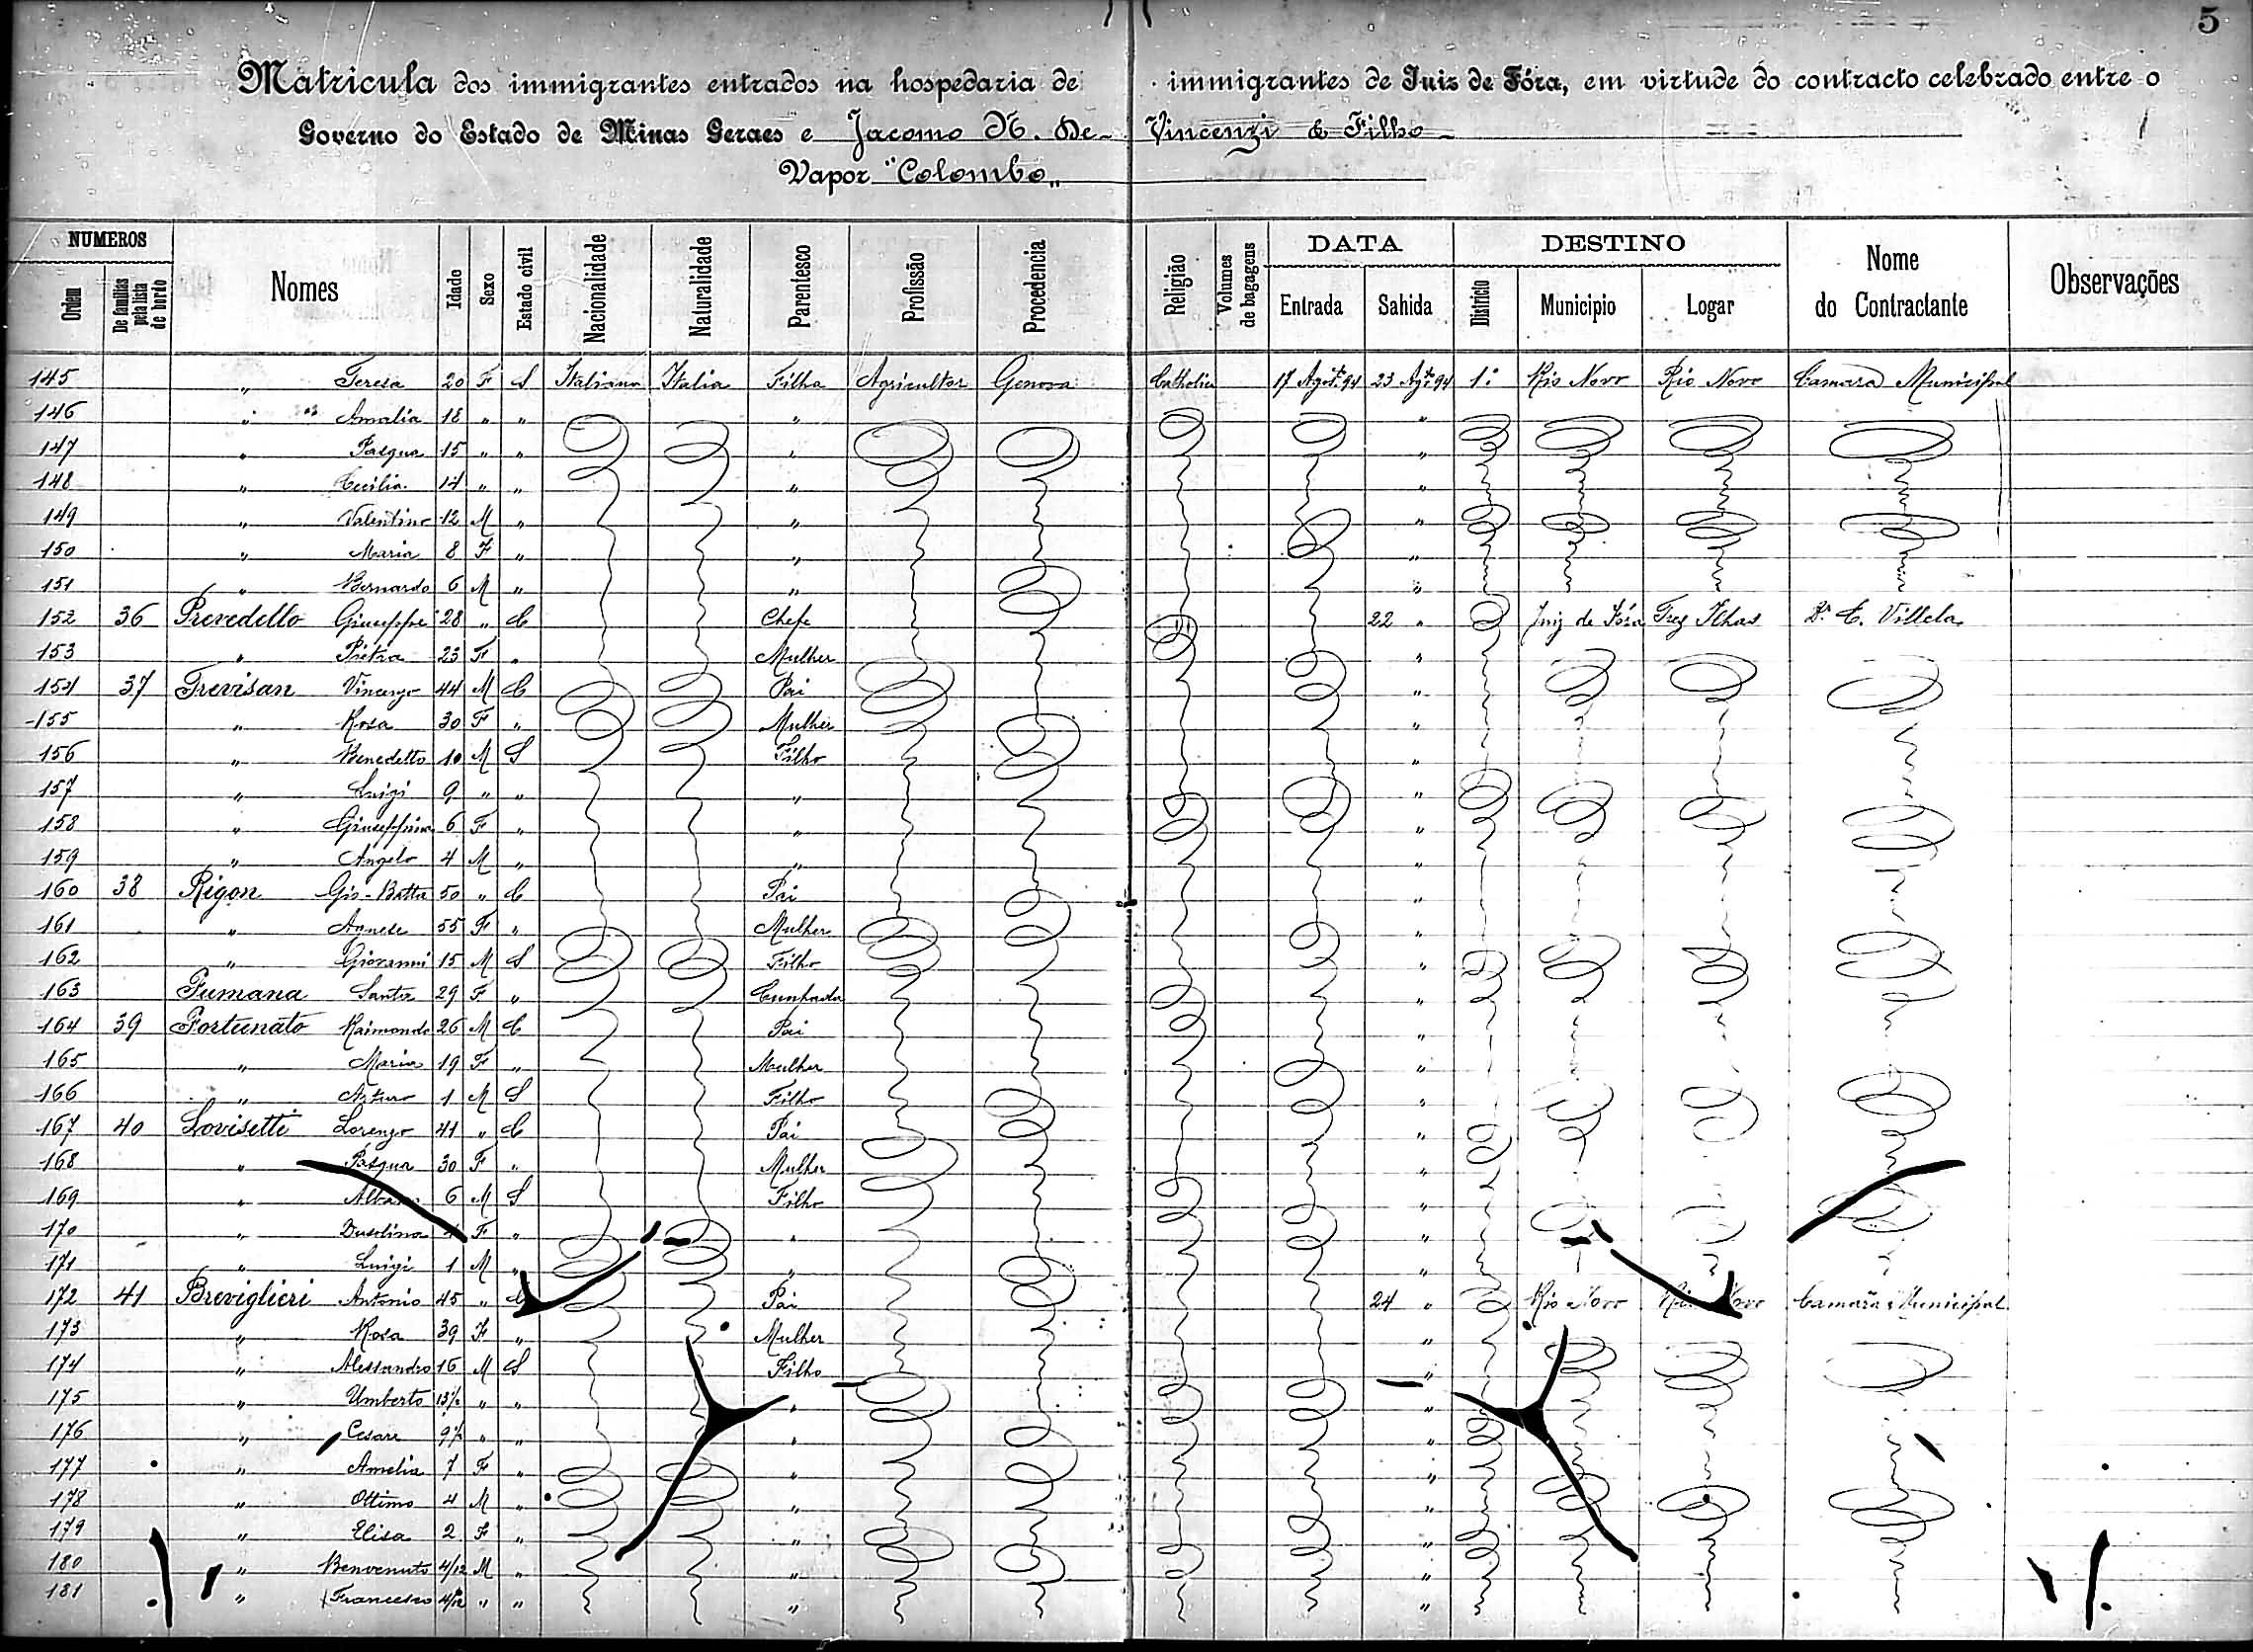 5
Matricula dos immigrantes entrados na hospedaria de immigrantes de Juiz de Fóra, em virtude do contracto celebrado entre o
Governo do Estado de Minas Geraes e Jacomo N. De Vincenzi & Filho
Vapor "Colombo"
NUMEROS DATA DESTINO
Ordem De familias pela lista de bordo Nomes Idade Sexo Estado civil Nacionalidade Naturalidade Parentesco Profissão Procedencia Religião Volumes de bagagens Entrada Sahida Districto Municipio Logar Nome do Contractante Observações
145 " Teresa 20 F S Italiana Italia Filha Agricultor Genova Catholica 17 Agosto 94 23 Agto 94 1º Rio Novo Rio Novo Camara Municipal
146 " Amalia 18 " " " "
147 " Pasqua 15 " " " "
148 " Cecilia 14 " " " "
149 " Valentino 12 M " " "
150 " Maria 8 F " " "
151 " Bernardo 6 M " " "
152 36 Prevedello Giuseppe 28 " C Chefe 22 " Juiz de Fóra Trez Ilhas Dr. C. Villela
153 " Pietra 23 F " Mulher "
154 37 Trevisan Vincenzo 44 M C Pai "
155 " Rosa 30 F " Mulher "
156 " Benedetto 10 M S Filho "
157 " Luigi 9 " " " "
158 " Giuseppina 6 F " " "
159 " Angelo 4 M " " "
160 38 Rigon Gio-Batta 50 " C Pai "
161 " Agnese 55 F " Mulher "
162 " Giovanni 15 M S Filho "
163 Pumana Santa 29 F " Cunhada "
164 39 Fortunato Raimondo 26 M C Pai "
165 " Maria 19 F " Mulher "
166 " Arturo 1 M S Filho "
167 40 Lovisetti Lorenzo 41 " C Pai "
168 " Pasqua 30 F " Mulher "
169 " 6 M S Filho "
170 " Dusolina F " " "
171 " Luigi 1 M " " "
172 41 Breviglieri Antonio 45 " C Pai 24 " Rio Novo Rio Novo Camara Municipal
173 " Rosa 39 F " Mulher "
174 " Alessandro 16 M S Filho "
175 " Umberto 13½ " " " "
176 " Cesare 9½ " " " "
177 " Amelia 7 F " " "
178 " Ottimo 4 M " " "
179 " Elisa 2 F " " "
180 " Benvenuto 4/12 M " " "
181 " Francesco 4/12 " " " "